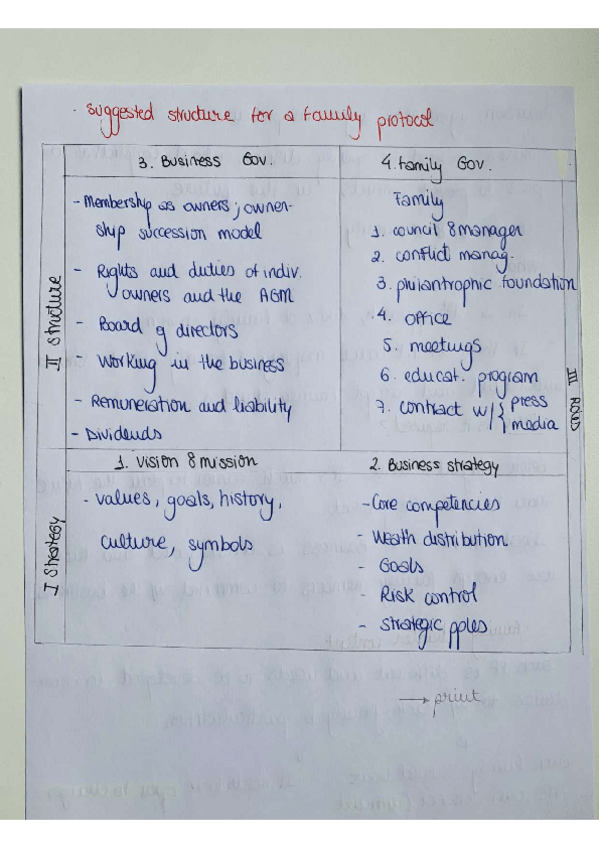 - Suggested structure for a family protocol
3. Business Gov.
- Membership as owners; owner-
ship succession model
- Rights and duties of indiv.
owners and the AGM
- Board of directors
- Working in the business
- Remuneration and liability
- Dividends
4. Family Gov.
Family
1. council & manager
2. conflict manag.
3. philantrophic foundation
4. office
5. meetings
6. educat. program
7. contract w/ { press
{ media
II Structure
III
1. Vision & mission
- values, goals, history,
culture, symbols
2. Business strategy
- Core competencies
- Weath distribution
- Goals
- Risk control
- Strategic pples
I Strategy
→ print